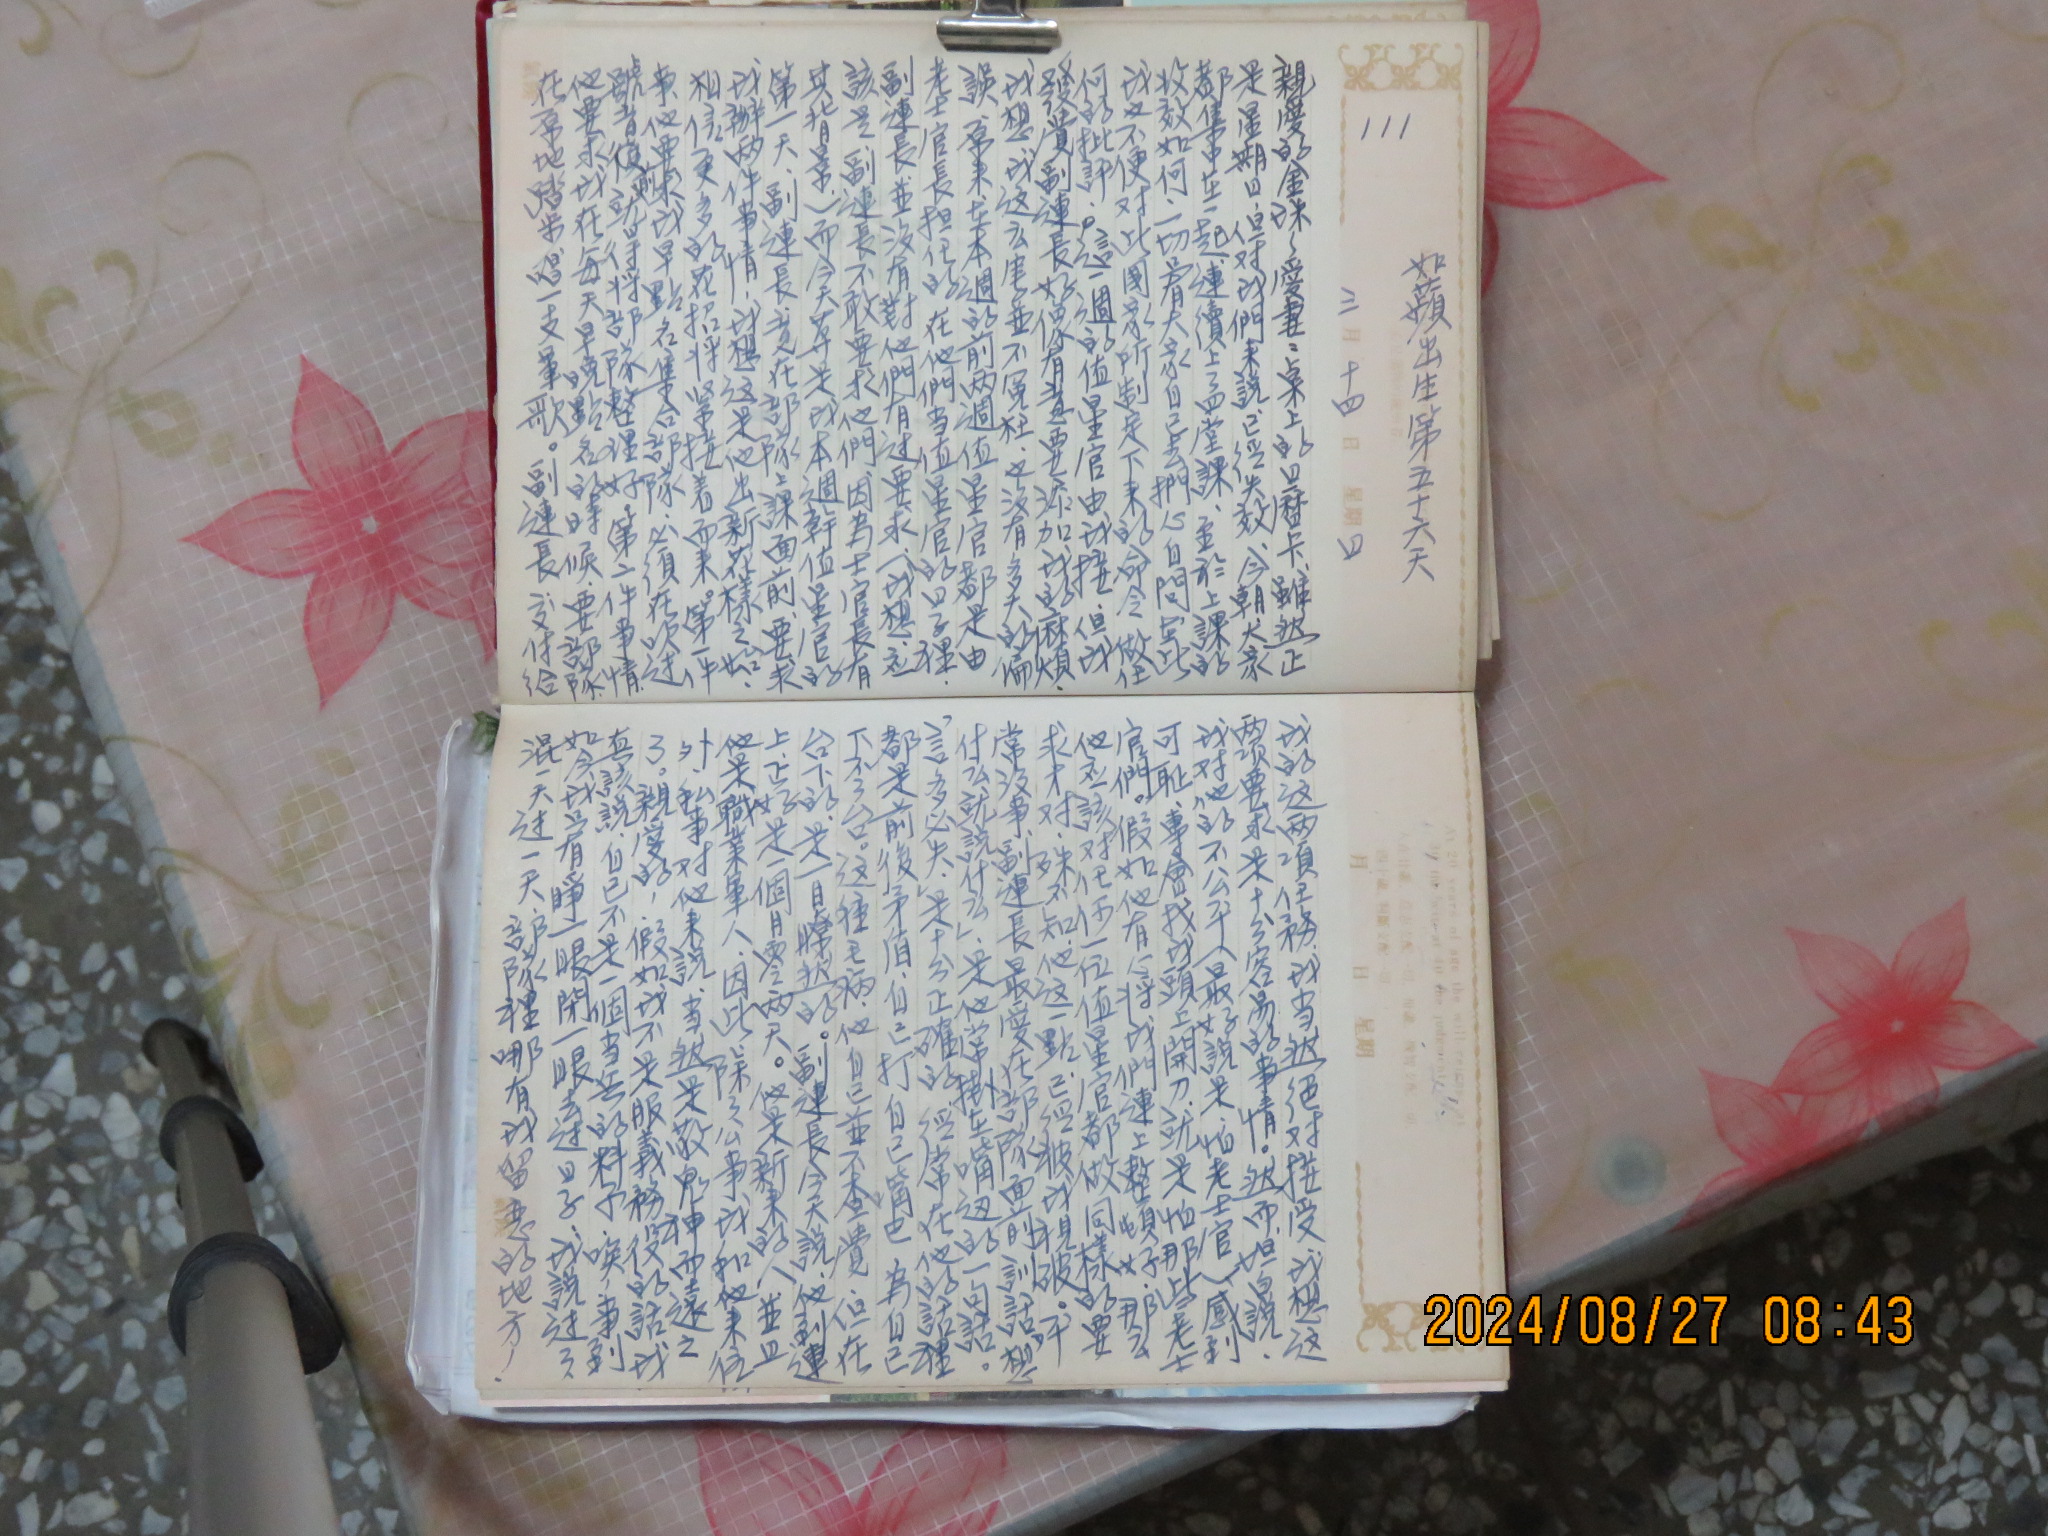 如蘋出生第五十六天
111
三月十四日 星期四
親愛的金珠～愛妻：桌上的日曆卡，雖然正
是星期日，但對我們來說，已經失效，今朝，大家
都集中在一起，連續上了四堂課，至於上課的
收效如何，一切只有大家自己去捫心自問，至此
我也不便對此國家所制定下來的命令做任
何的批評。這一週的值星官由我接，但我
發覺副連長好像有意要添加我的麻煩，
我想，我这么害並不冤枉，也沒有多大的偏
誤，原來在本週的前兩週值星官都是由
老士官長担任的，在他們当值星官的日子裡，
副連長並沒有對他們有过要求，（我想，应
該是，副連長不敢要求他們，因為士官長有
其背景，）而今天算是我本週幹值星官的
第一天，副連長竟在部隊上課面前，要求
我辦兩件事情，我想這是他出新花樣之始，
相信更多的在招將紧接着而來。第一件
事他要求我早點名集合部隊，必須在吹过
號音後就得將部隊整理好，第二件事情，
他要求我在每天早晚點名的時候，要部隊
在原地踏步，唱一支軍歌。副連長交付給
我的这两項任務，我当然絕对接受，我想这
两項要求是十分容易的事情。然而，坦白說，
我对他的不公平（最好說是，怕老士官）感到
可恥，專會找我頭上開刀，就是怕那些老士
官們。假如他有心將我們連上整頓好，那么
他应該对任何一位值星官都做同樣的要
求才对，殊不知，他这一點，已經被我視破。平
常沒事，副連長最愛在部隊面前訓話，“想
什么就說什么”，是他常掛在嘴边的一句話。
“言多必失”是十分正確的，經常在他的話裡
都是前後矛盾，自己打自己嘴巴，為自己
下不了台。这種毛病，他自己並不查覺，但在
台下的，是一目瞭然的。副連長今天說，他到連
上正好是一個月零兩天。他是新來的人，並且
他是職業軍人，因此，除了公事，我和他來往
外，私事对他來說，当然是敬鬼神而遠之
了。親愛的，假如我不是服義務役的話，我
真該說，自己不是一個当兵的料子，唉，事到
如今，我只有睜一眼閉一眼去过日子，我說过了
混一天过一天，部隊裡哪有我留恋的地方！
月 日 星期